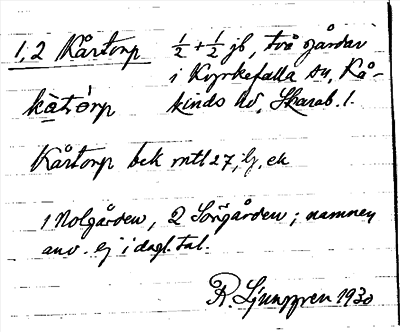 1,2 Kårtorp ½ + ½ jb, två gårdar
i Kyrkefalla sn, Kå-
kåtòrp kinds hd, Skarab. l.
Kårtorp bek mtl 27, lj, ek
1 Nolgården, 2 Sörgården; namnen
anv. ej i dagl. tal.
R. Ljunggren 1930